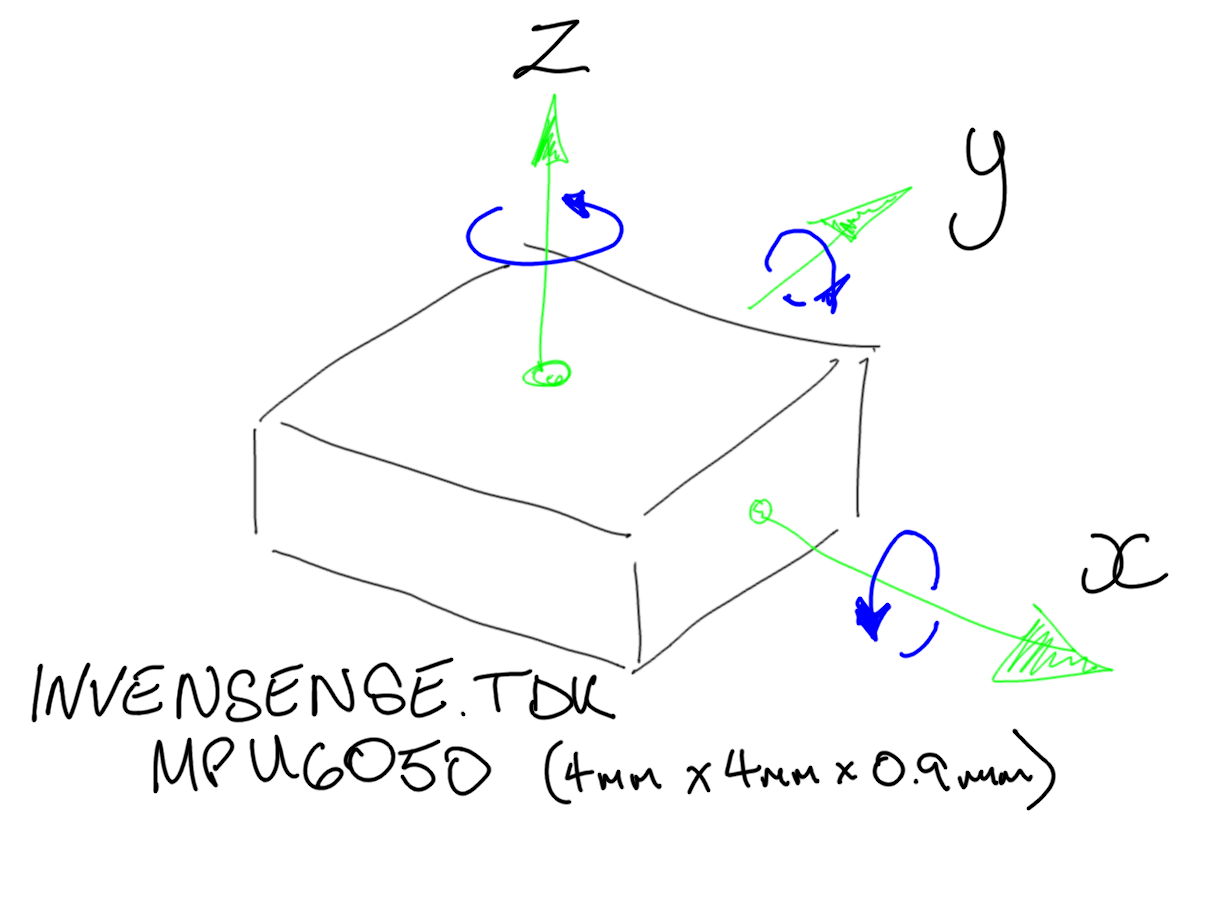 Z
y
x
INVENSENSE.TDK
MPU6050 (4mm x 4mm x 0.9mm)